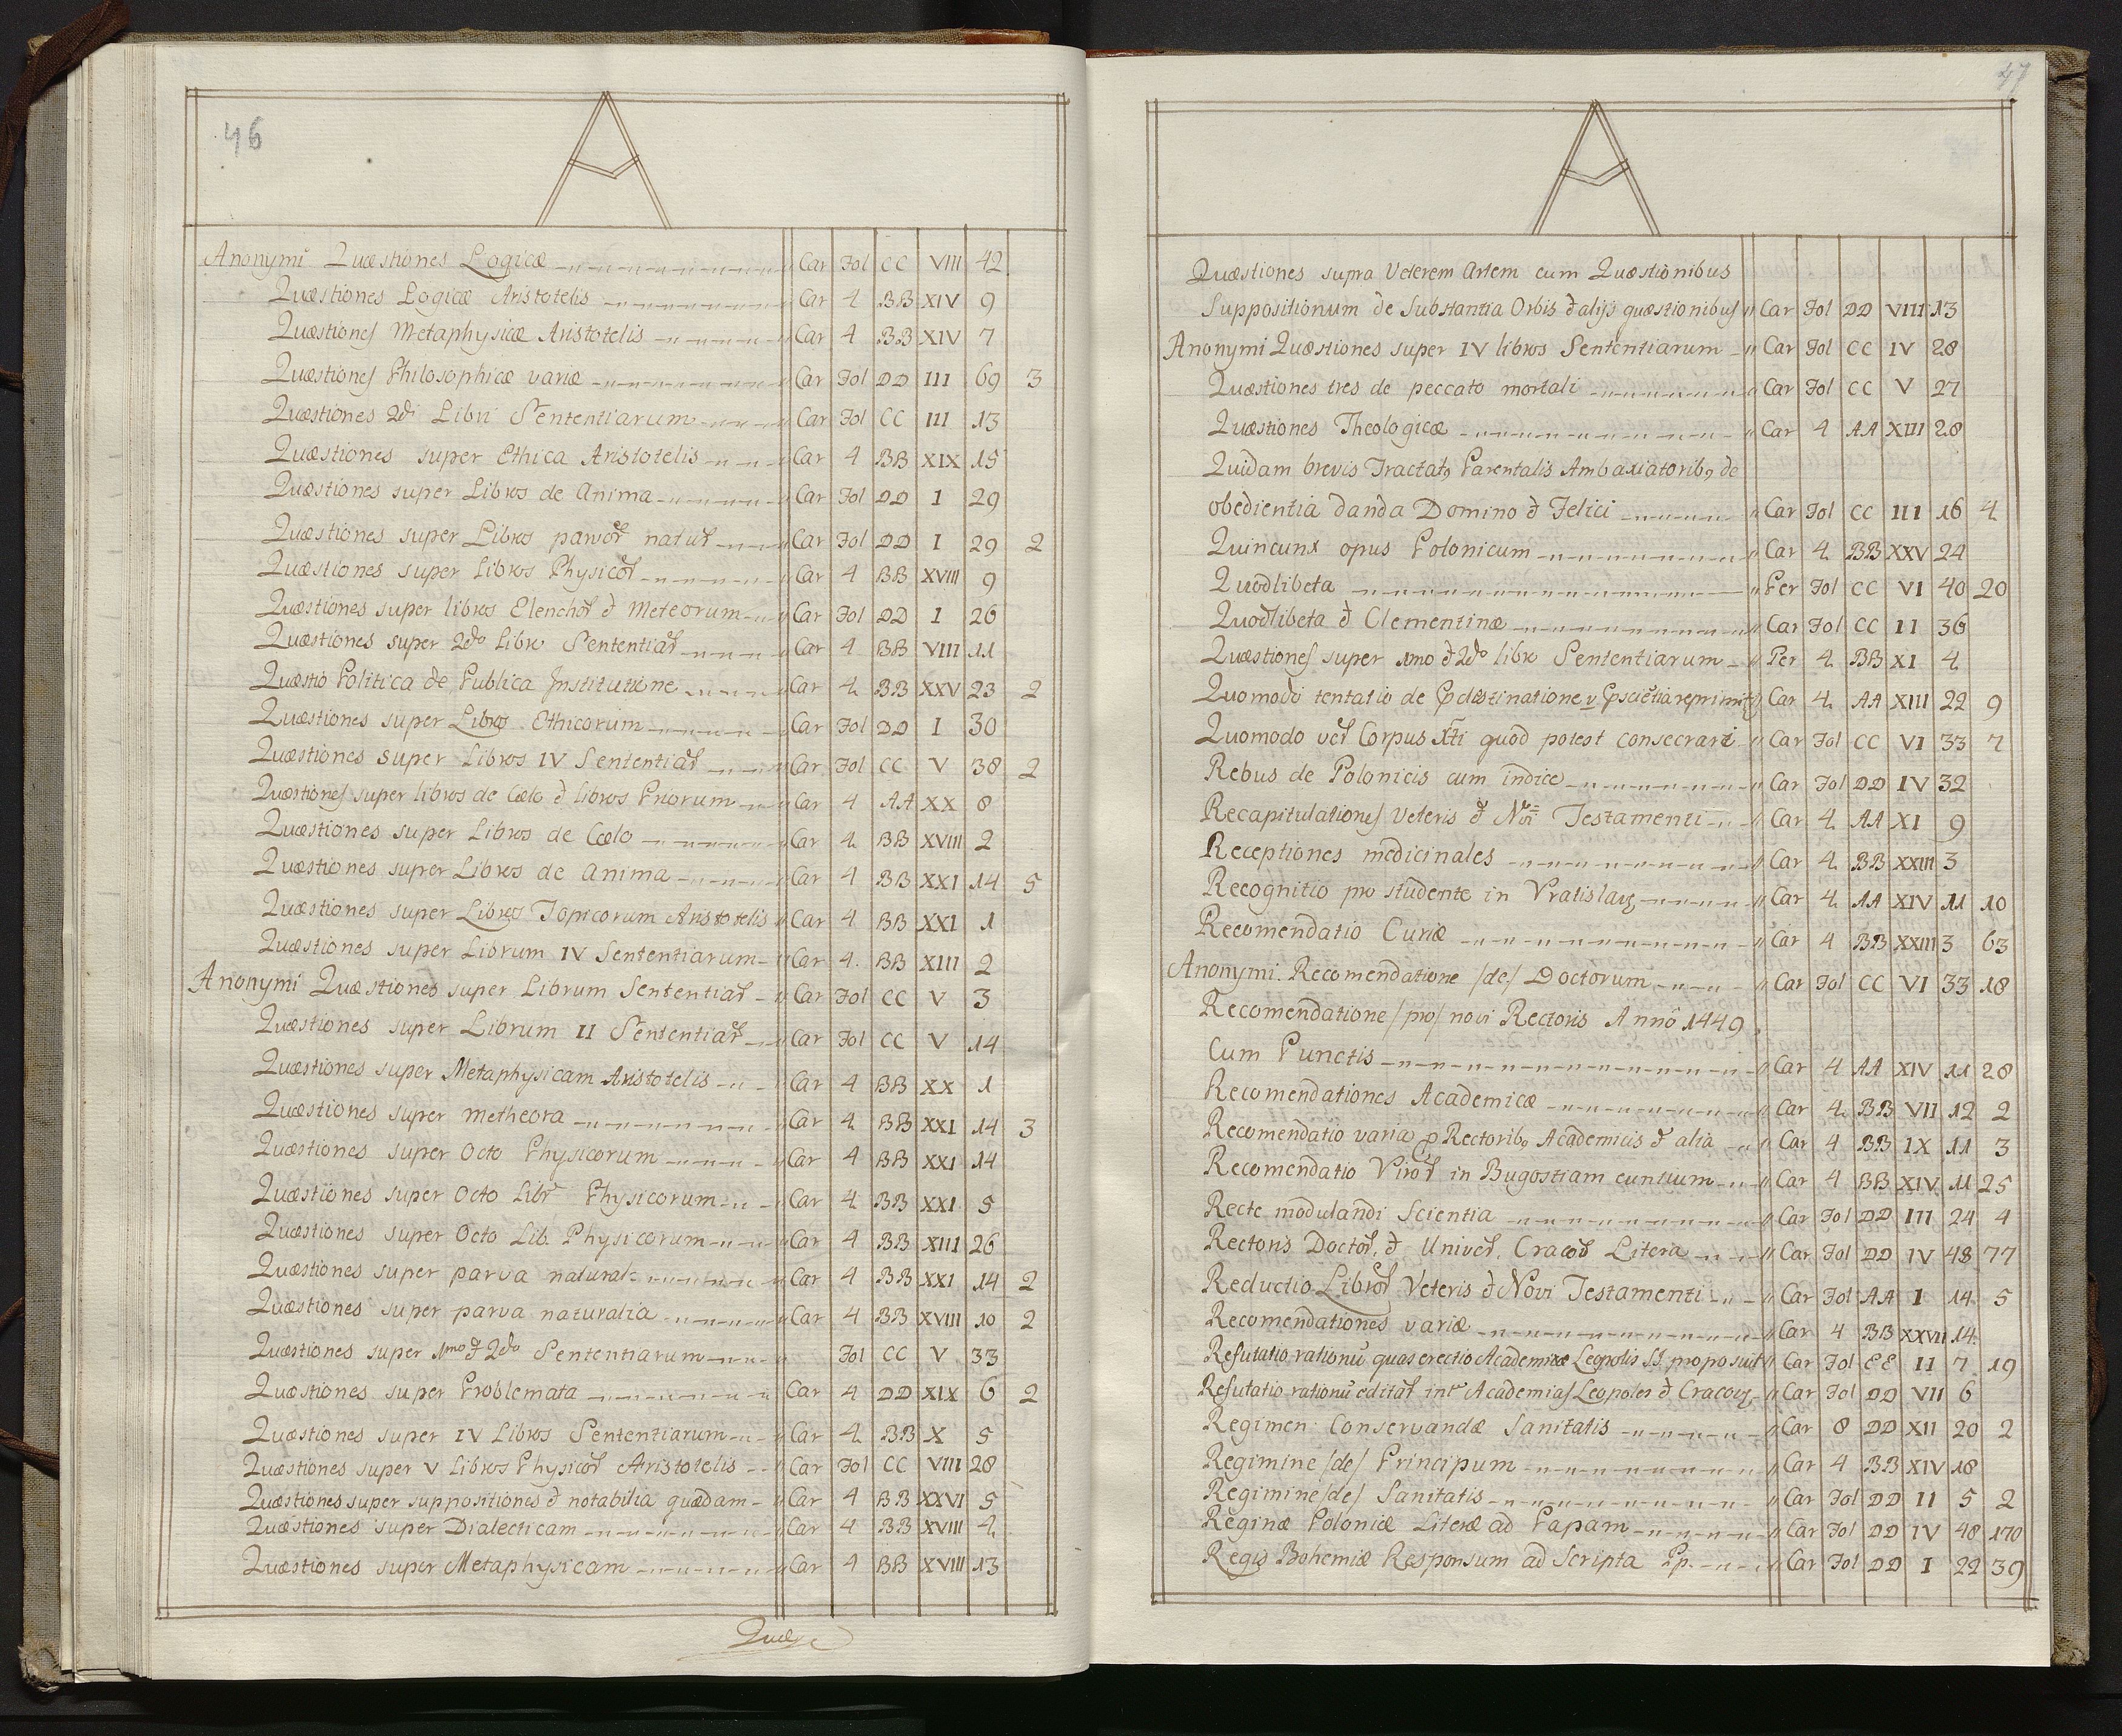 46
A
Anonymi Quæstiones Logicæ Car Fol CC VIII 42
Quæstiones Logicæ Aristotelis Car 4 BB XIV 9
Quæstiones Metaphysicæ Aristotelis Car 4 BB XIV 7
Quæstiones Philosophicæ variæ Car Fol DD III 69 3
Quæstiones 2di Libri Sententiarum Car Fol CC III 13
Quæstiones super Ethica Aristotelis Car 4 BB XIX 15
Quæstiones super Libros de Anima Car Fol DD I 29
Quæstiones super Libros parvoꝝ natuꝝ Car Fol DD I 29 2
Quæstiones super Libros Physicoꝝ Car 4 BB XVIII 9
Quæstiones super libros Elenchoꝝ & Meteorum Car Fol DD I 26
Quæstiones super 2do Libro Sententiaꝝ Car 4 BB VIII 11
Quæstio Politica de Publica Institutione Car 4 BB XXV 23 2
Quæstiones super Libros Ethicorum Car Fol DD I 30
Quæstiones super Libros IV Sententiaꝝ Car Fol CC V 38 2
Quæstiones super libros de Cælo & libros Priorum Car 4 AA XX 8
Quæstiones super Libros de Cælo Car 4 BB XVIII 2
Quæstiones super Libros de Anima Car 4 BB XXI 14 5
Quæstiones super Libros Topicorum Aristotelis Car 4 BB XXI 1
Quæstiones super Librum IV Sententiarum Car 4. BB XIII 2
Anonymi Quæstiones super Librum Sententiaꝝ Car Fol CC V 3
Quæstiones super Librum II Sententiaꝝ Car Fol CC V 14
Quæstiones super Metaphysicam Aristotelis Car 4 BB XX 1
Quæstiones super metheora Car 4 BB XXI 14 3
Quæstiones super Octo Physicorum Car 4 BB XXI 14
Quæstiones super Octo Libr Physicorum Car 4 BB XXI 5
Quæstiones super Octo Lib. Physicorum Car 4 BB XIII 26
Quæstiones super parva natural: Car 4 BB XXI 14 2
Quæstiones super parva naturalia Car 4 BB XVIII 10 2
Quæstiones super 1mo & 2do Sententiarum Fol CC V 33
Quæstiones super Problemata Car 4 DD XIX 6 2
Quæstiones super IV Libros Sententiarum Car 4 BB X 5
Quæstiones super V Libros Physicoꝝ Aristotelis Car Fol CC VIII 28
Quæstiones super suppositiones & notabilia quædam Car 4 BB XXVI 5
Quæstiones super Dialecticam Car 4 BB XVIII 4
Quæstiones super Metaphysicam Car 4 BB XVIII 13
47
A
Quæstiones supra Veterem Artem cum Quæstionibus
Suppositionum de Substantia Orbis & alijs quæstionibus Car Fol DD VIII 13
Anonymi Quæstiones super IV libros Sententiarum Car Fol CC IV 28
Quæstiones tres de peccato mortali Car Fol CC V 27
Quæstiones Theologicæ Car 4 AA XIII 28
Quidam brevis Tractatꝰ Parentalis Ambaxiatoribꝰ de
obedientia danda Domino & Felici Car Fol CC III 16 4
Quincunx opus Polonicum Car 4 BB XXV 24
Quodlibeta Per Fol CC VI 40 20
Quodlibeta & Clementinæ Car Fol CC II 36
Quæstiones super 1mo & 2do libro Sententiarum Per 4 BB XI 4
Quomodo tentatio de Car 4 AA XIII 22 9
Quomodo veꝝ Corpus Xti quod potest consecrari Car Fol CC VI 33 7
Rebus de Polonicis cum indice Car Fol DD IV 32
Recapitulationes Veteris & Novi Testamenti Car 4 AA XI 9
Receptiones medicinales Car 4 BB XXIII 3
Recognitio pro studente in Vratislavꝫ Car 4 AA XIV 11 10
Recomendatio Curiæ Car 4 BB XXIII 3 63
Anonymi. Recomendatione /de/ Doctorum Car Fol CC VI 33 18
Recomendatione /pro/ novi Rectoris Anno 1449
Cum Punctis Car 4 AA XIV 11 28
Recomendationes Academicæ Car 4 BB VII 12 2
Recomendatio varia ꝓ Rectoribꝰ Academicis & alia Car 4 BB IX 11 3
Recomendatio Viroꝝ in Bugostiam euntium Car 4 BB XIV 11 25
Recte modulandi Scientia Car Fol DD III 24 4
Rectoris Doctoꝝ. & Univeꝝ. Cracoꝝ Litera Car Fol DD IV 48 77
Reductio Libroꝝ Veteris & Novi Testamenti Car Fol AA I 14 5
Recomendationes variæ Car 4 BB XXVII 14
Refutatio rationū quas erectio Academiæ Leopolis S.J. proposuit Car Fol EE II 7 19
Refutatio rationū editaꝝ intr Academias Leopoles & Cracovꝫ Car Fol DD VII 6
Regimen Conservandæ Sanitatis Car 8 DD XII 20 2
Regimine /de/ Principum Car 4 BB XIV 18
Regimine /de/ Sanitatis Car Fol DD II 5 2
Reginæ Poloniæ Literæ ad Papam Car Fol DD IV 48 170
Regis Bohemiæ Responsum ad Scripta Pp. Car Fol DD I 22 39